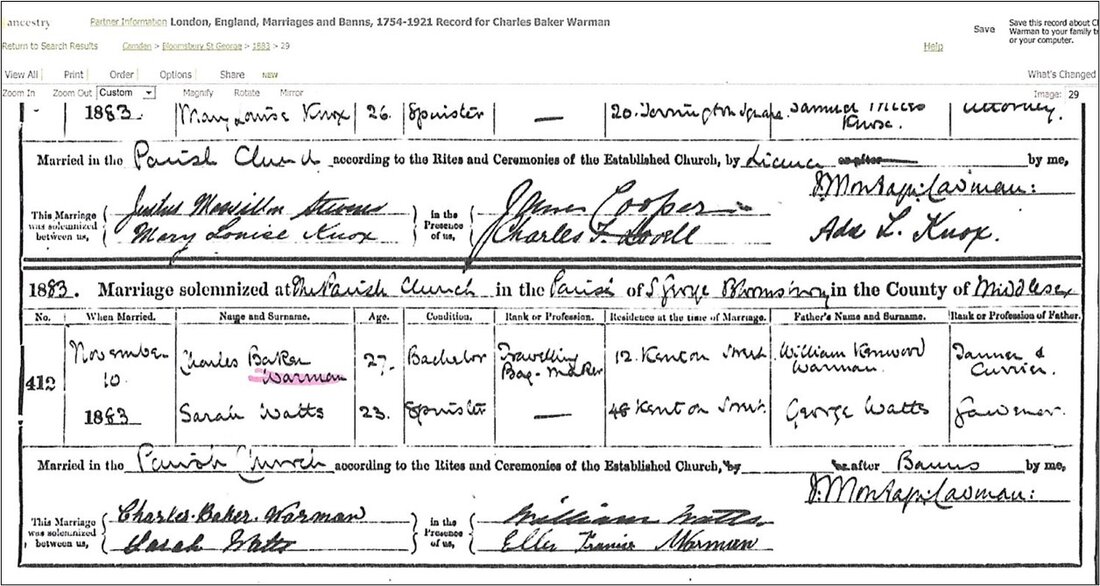 ancestry
Partner Information London, England, Marriages and Banns, 1754-1921 Record for Charles Baker Warman
Save
Save this record about C
Warman to your family t
or your computer.
Return to Search Results
Camden > Bloomsbury St George > 1883 > 29
Help
View All Print Order Options Share NEW
What's Changed
Zoom In Zoom Out Custom Magnify Rotate Mirror
Image: 29
1883 Mary Louise Knox 26. Spinster — 20. Torrington Square. Samuel Knox. Attorney.
Married in the Parish Church according to the Rites and Ceremonies of the Established Church, by Licence or after by me,
This Marriage was solemnized between us,
Mary Louise Knox
in the Presence of us,
James Cooper
Charles F. Lovell
Ada L. Knox.
1883. Marriage solemnized at The Parish Church in the Parish of S George Bloomsbury in the County of Middlesex
No. When Married. Name and Surname. Age. Condition. Rank or Profession. Residence at the time of Marriage. Father's Name and Surname. Rank or Profession of Father.
412 November 10 Charles Baker Warman 27. Bachelor Travelling Bag-Maker 12. Kenton Street William Kenwood Warman. Tanner & Currier.
1883 Sarah Watts 23. Spinster — 48 Kenton Street. George Watts
Married in the Parish Church according to the Rites and Ceremonies of the Established Church, by or after Banns by me,
This Marriage was solemnized between us,
Charles Baker Warman
Sarah Watts
in the Presence of us,
William Watts.
Warman